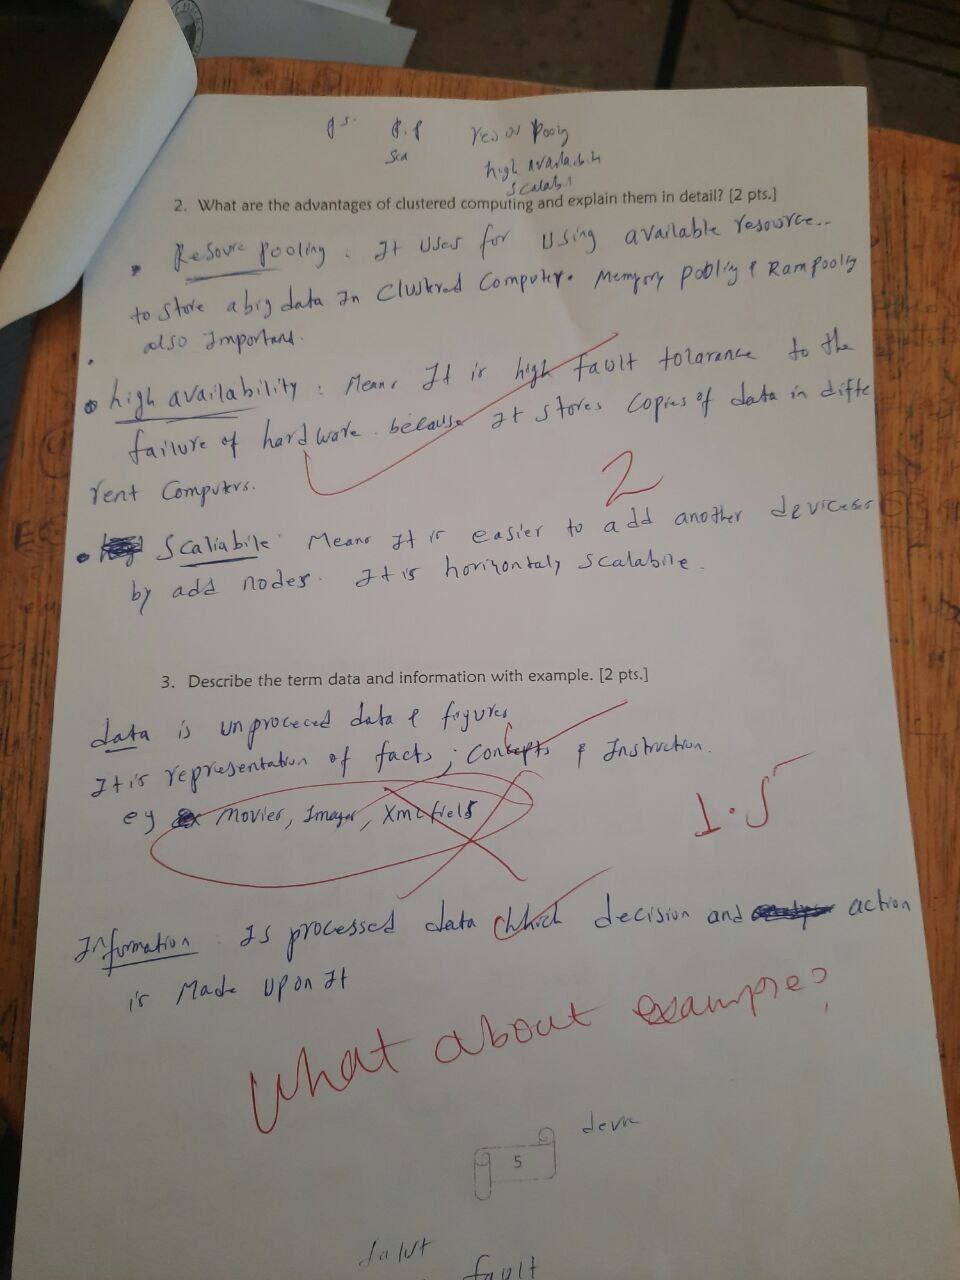 Res or Pooly
Sca
high availabili
Scalabi
2. What are the advantages of clustered computing and explain them in detail? [2 pts.]
Resoure Pooling . It uses for using available resource..
to store a big data In Clustered Computer. Memory pooling & Ram pooling
also Important.
high availability : Means It is high fault tolarance to the
failure of hardware. because It stores copies of data in diffe
rent Computers.
2
Scaliabile Means It is easier to add another devices
by add nodes. It is horizontaly scalabile.
3. Describe the term data and information with example. [2 pts.]
data is unproceced data & figures
It is representation of facts; Concepts & Instruction.
eg Movies, Images, Xml fiels
1.5
Information Is processed data which decision and action
is Made upon It
What about example?
devic
5
falut
fault